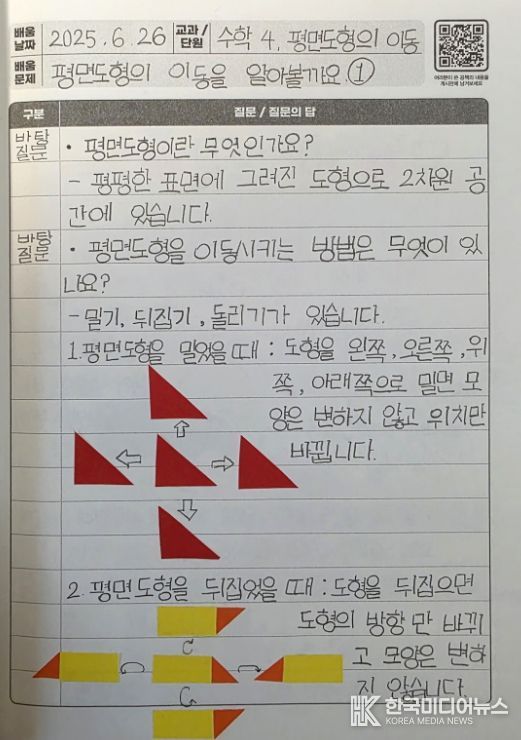 배움 날짜 2025. 6. 26 교과/단원 수학 4. 평면도형의 이동
배움 문제 평면도형의 이동을 알아볼까요 ①
구분 질문 / 질문의 답
바탕 질문 • 평면도형이란 무엇인가요?
- 평평한 표면에 그려진 도형으로 2차원 공
간에 있습니다.
바탕 질문 • 평면도형을 이동시키는 방법은 무엇이 있
나요?
- 밀기, 뒤집기, 돌리기가 있습니다.
1. 평면도형을 밀었을 때 : 도형을 왼쪽, 오른쪽, 위
쪽, 아래쪽으로 밀면 모
양은 변하지 않고 위치만
바뀝니다.
2. 평면도형을 뒤집었을 때 : 도형을 뒤집으면
도형의 방향만 바뀌
고 모양은 변하
지 않습니다.
한국미디어뉴스
KOREA MEDIA NEWS